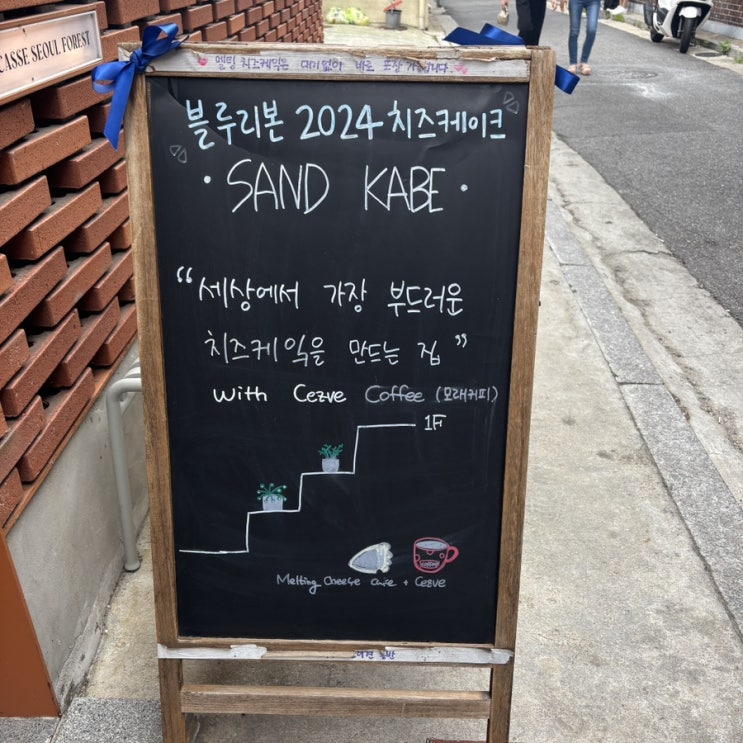 CASSE SEOUL FOREST
멜팅 치즈케익은 대기없이 바로 포장 가능합니다.
블루리본 2024 치즈케이크
· SAND KABE ·
“세상에서 가장 부드러운
치즈케익을 만드는 집”
with Cezve Coffee (모래커피)
1F
Melting cheese cake + Cezve